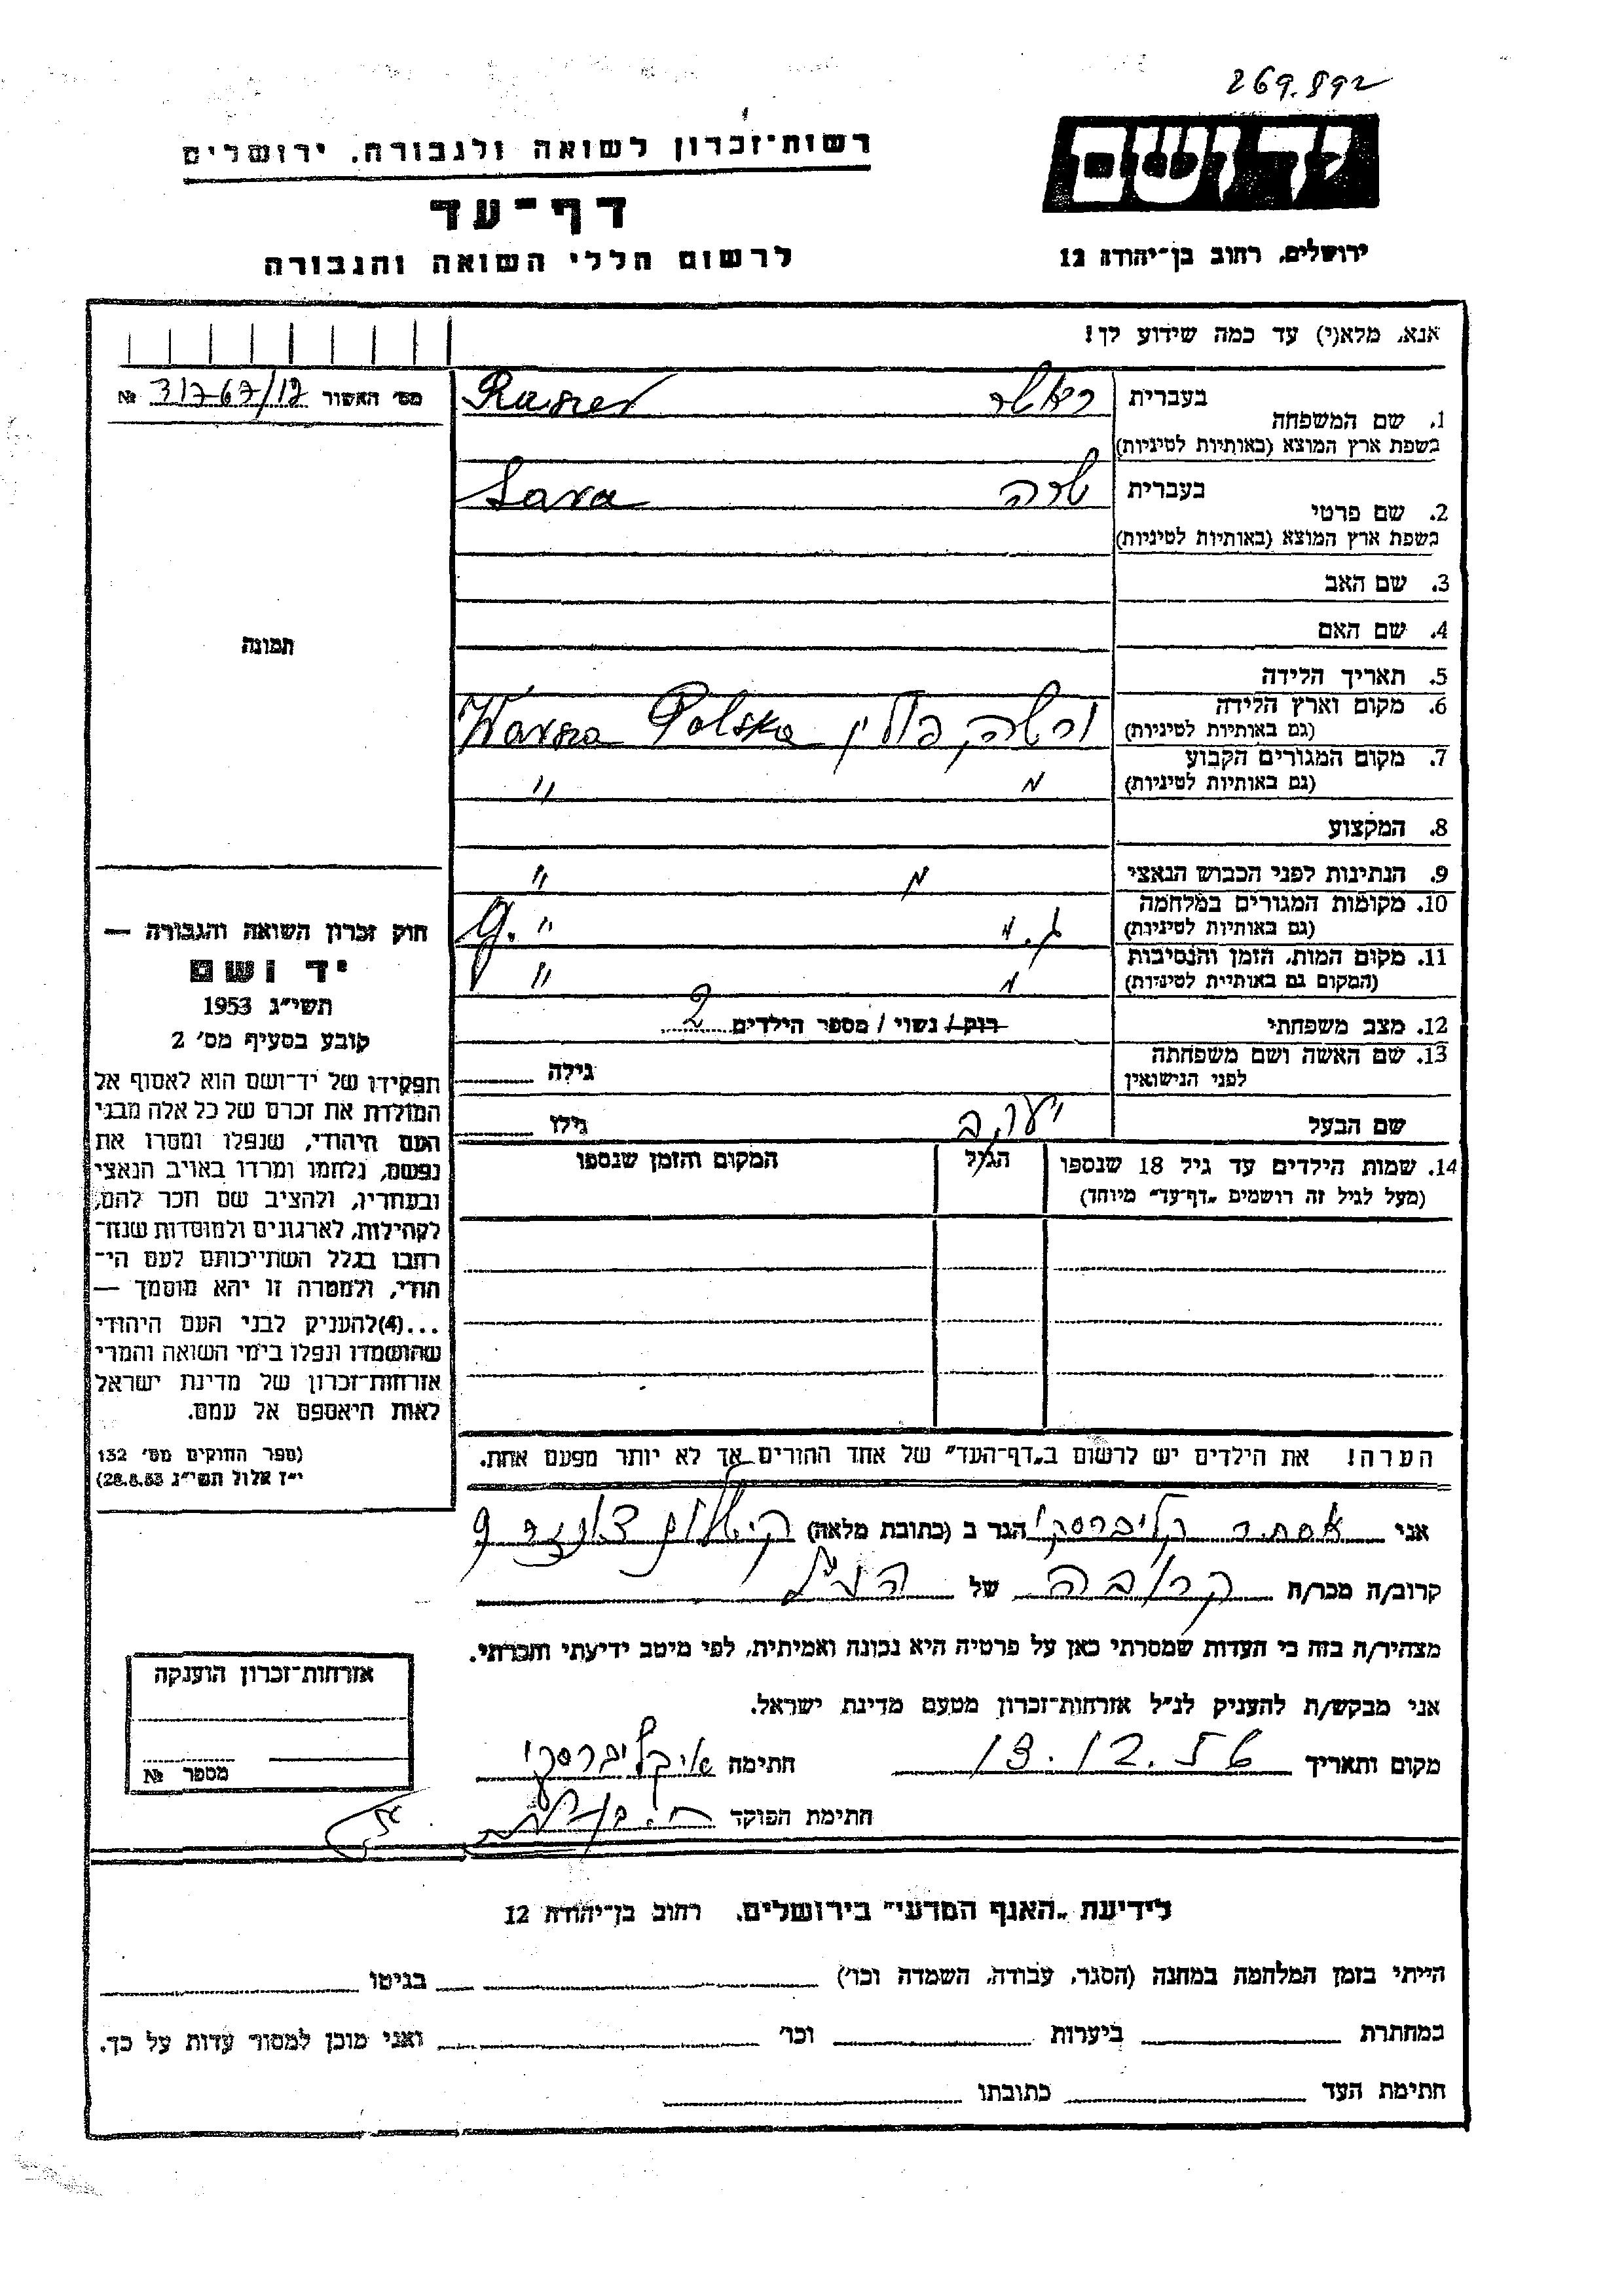 269.892
יד ושם
ירושלים, רחוב בן־יהודה 12
רשות־זכרון לשואה ולגבורה, ירושלים
דף־עד
לרשום חללי השואה והגבורה
אנא, מלא(י) עד כמה שידוע לך!
מס׳ האשור 31767/12 №
1. שם המשפחה
בעברית ראשר
בשפת ארץ המוצא (באותיות לטיניות)
2. שם פרטי
בעברית שרה Sara
בשפת ארץ המוצא (באותיות לטיניות)
3. שם האב
4. שם האם
5. תאריך הלידה
6. מקום וארץ הלידה (גם באותיות לטיניות) ורשה, פולין Warsza Polska
7. מקום המגורים הקבוע (גם באותיות לטיניות) " "
8. המקצוע
9. הנתינות לפני הכבוש הנאצי " "
10. מקומות המגורים במלחמה (גם באותיות לטיניות) ג. " g. "
11. מקום המות, הזמן והנסיבות (המקום גם באותיות לטיניות) " "
12. מצב משפחתי רוק / נשוי / מספר הילדים 2
13. שם האשה ושם משפחתה לפני הנישואין גילה
שם הבעל יעקב גילו
14. שמות הילדים עד גיל 18 שנספו (מעל לגיל זה רושמים „דף־עד״ מיוחד)
הגיל
המקום והזמן שנספו
הערה! את הילדים יש לרשום ב„דף־העד״ של אחד ההורים אך לא יותר מפעם אחת.
תמונה
חוק זכרון השואה והגבורה —
יד ושם
תשי״ג 1953
קובע בסעיף מס׳ 2
תפקידו של יד־ושם הוא לאסוף אל
המולדת את זכרם של כל אלה מבני
העם היהודי, שנפלו ומסרו את
נפשם, נלחמו ומרדו באויב הנאצי
ובעוזריו, ולהציב שם וזכר להם,
לקהילות, לארגונים ולמוסדות שנח־
רבו בגלל השתייכותם לעם הי־
הודי, ולמטרה זו יהא מוסמך —
...(4) להעניק לבני העם היהודי
שהושמדו ונפלו בימי השואה והמרי
אזרחות־זכרון של מדינת ישראל
לאות היאספם אל עמם.
(ספר החוקים מס׳ 132
י״ז אלול תשי״ג 28.8.53)
אני אסתר קליברסקי הגר ב (כתובת מלאה) 9
קרוב/ה מכר/ה קרובה של הנ״ל
מצהיר/ה בזה כי העדות שמסרתי כאן על פרטיה היא נכונה ואמיתית, לפי מיטב ידיעתי והכרתי.
אני מבקש/ת להעניק לנ״ל אזרחות־זכרון מטעם מדינת ישראל.
מקום ותאריך 13.12.56 חתימה א.קליברסקי
חתימת הפוקד
אזרחות־זכרון הוענקה
מספר №
לידיעת „האגף המדעי״ בירושלים, רחוב בן־יהודה 12
הייתי בזמן המלחמה במחנה (הסגר, עבודה, השמדה וכו׳) בגיטו
במחתרת ביערות וכו׳ ואני מוכן למסור עדות על כך.
חתימת העד כתובתו